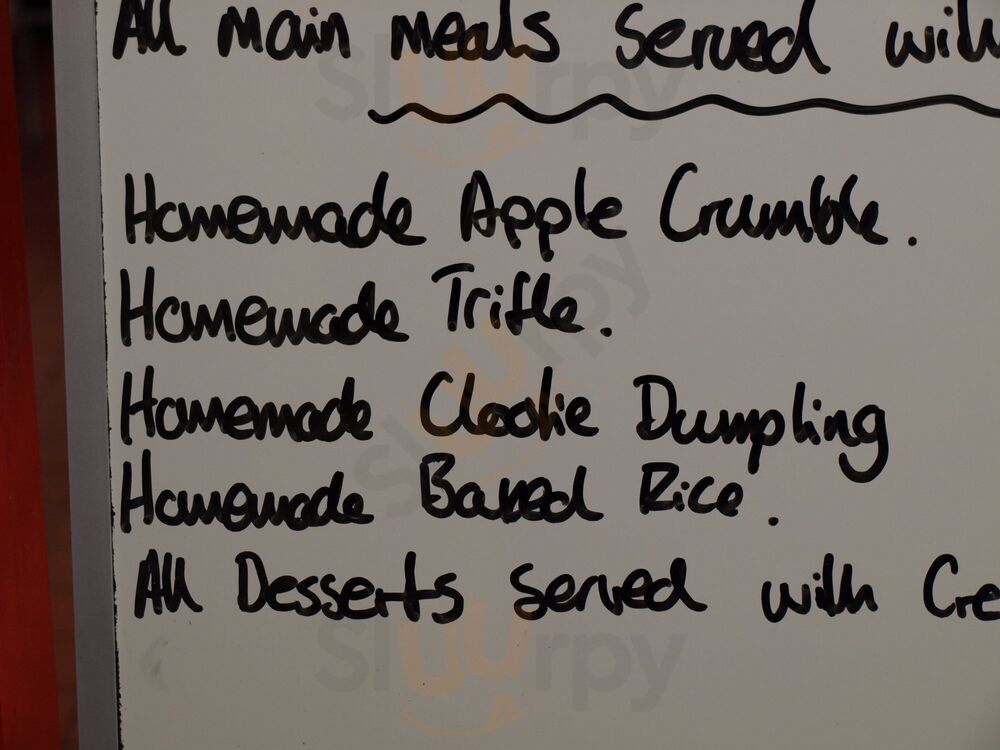 All main meals Served with
Homemade Apple Crumble.
Homemade Trifle.
Homemade Clootie Dumpling
Homemade Baked Rice.
All Desserts Served with Cre
Sluurpy
Sluurpy
Sluurpy
Sluurpy